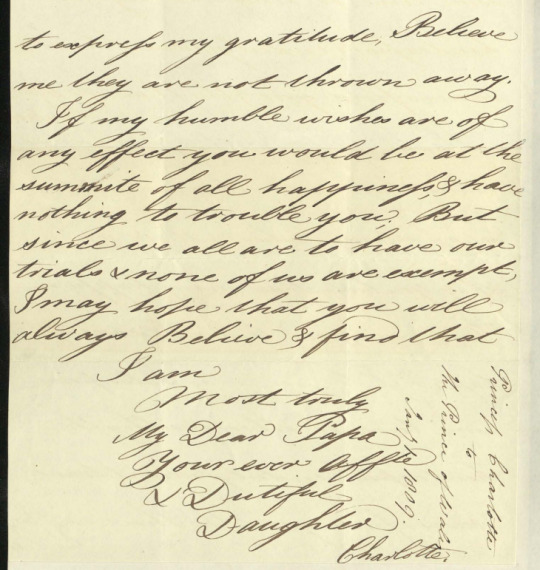 to express my gratitude, Believe
me they are not thrown away.
If my humble wishes are of
any effect you would be at the
summite of all happiness, & have
nothing to trouble you, But
since we all are to have our
trials & none of us are exempt,
I may hope that you will
always Believe & find that
I am
Most truly
My Dear Papa
Your ever Affte
& Dutiful
Daughter
Charlotte.
Princess Charlotte
to
The Prince of Wales
1809.